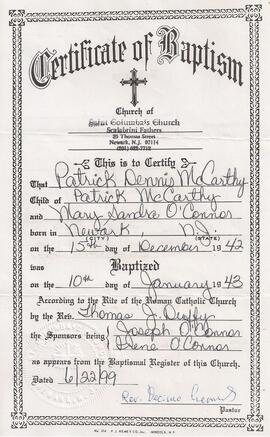 Certificate of Baptism
Church of
Saint Columba's Church
Scalabrini Fathers
25 Thomas Street
Newark, N.J. 07114
This is to Certify
That Patrick Dennis McCarthy
Child of Patrick McCarthy
and Mary Sandra O'Connor
born in Newark N.J.
(CITY) (STATE)
on the 15th day of December 1942
was
Baptized
on the 10th day of January 1943
According to the Rite of the Roman Catholic Church
by the Rev. Thomas J. Duffy
the Sponsors being Joseph O'Connor
Irene O'Connor
as appears from the Baptismal Register of this Church.
Dated 6/22/99
Rev.
Pastor